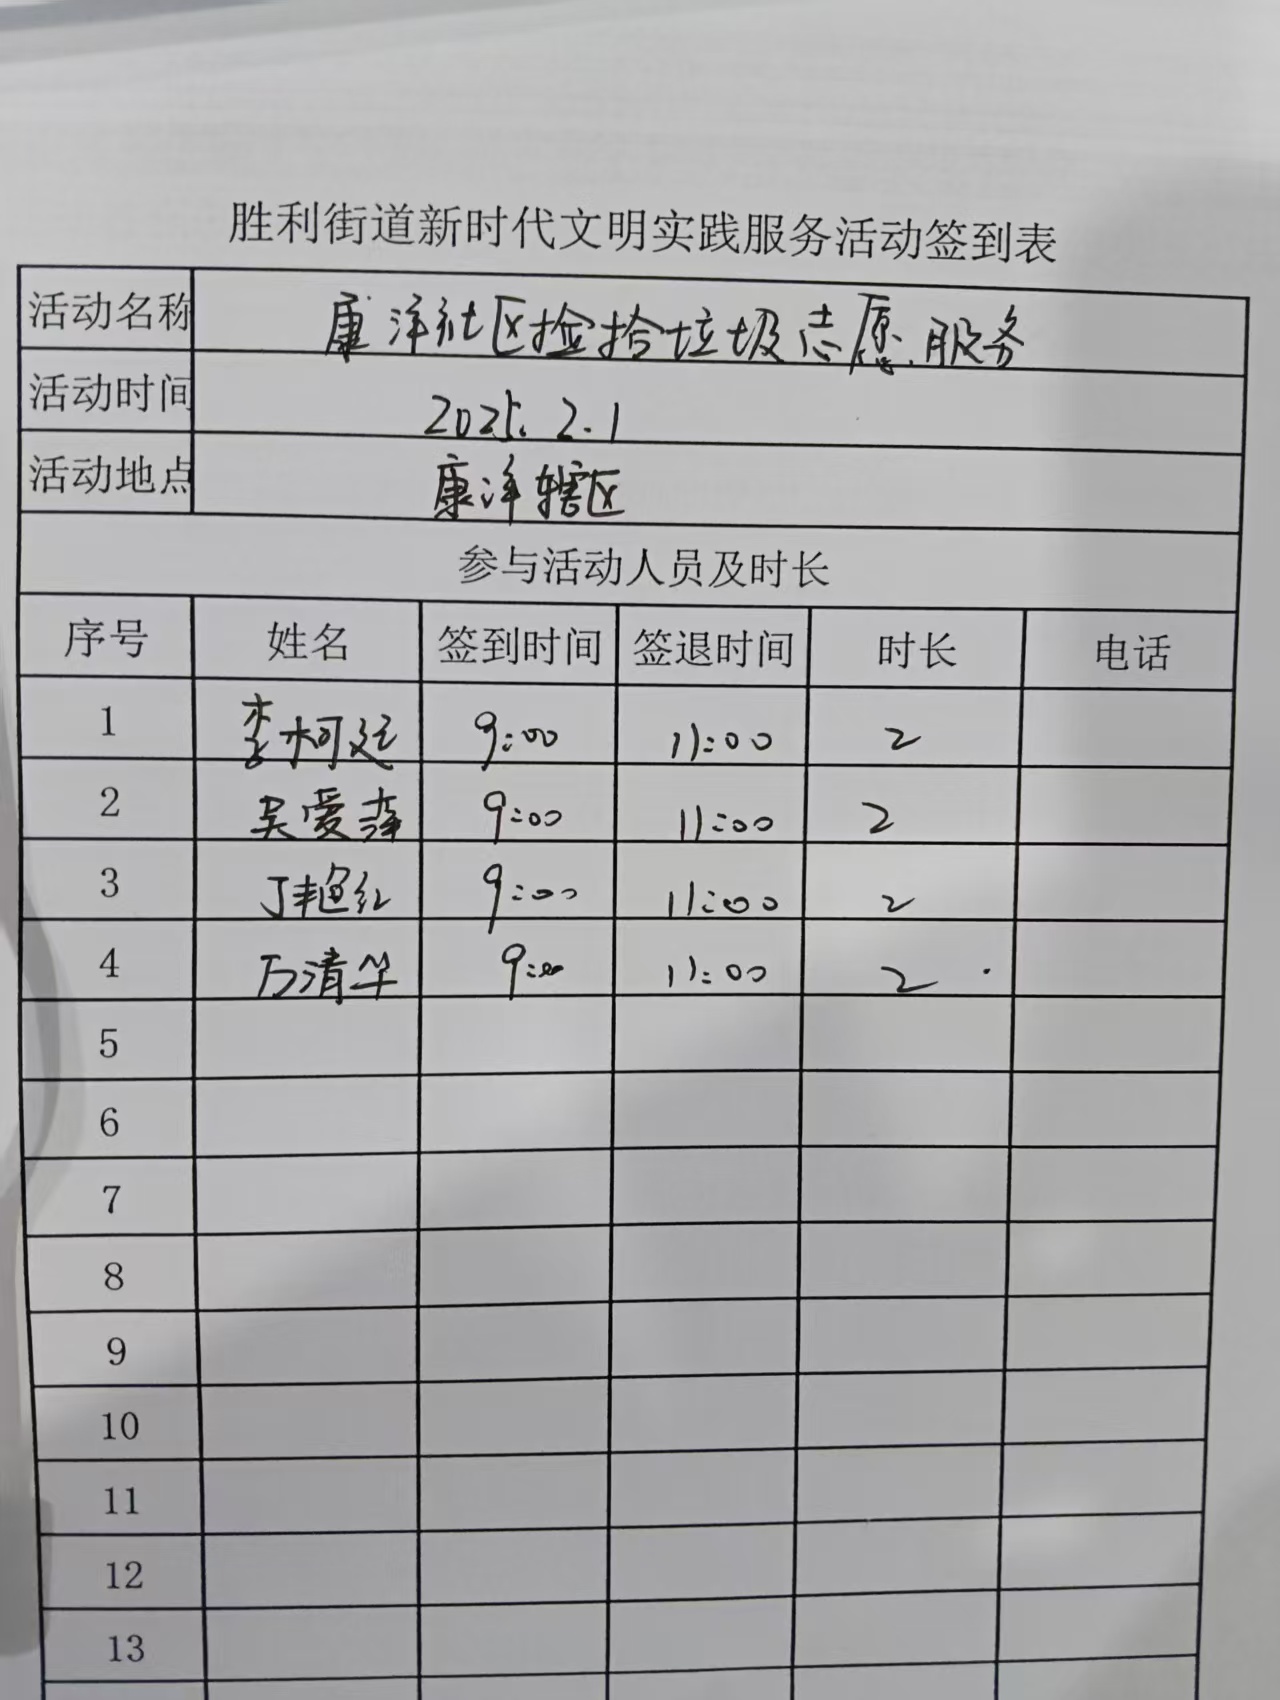 胜利街道新时代文明实践服务活动签到表
活动名称 康洋社区捡拾垃圾志愿服务
活动时间 2025.2.1
活动地点 康洋辖区
参与活动人员及时长
序号 姓名 签到时间 签退时间 时长 电话
1 李柯廷 9:00 11:00 2
2 吴爱萍 9:00 11:00 2
3 丁艳红 9:00 11:00 2
4 万清华 9:00 11:00 2
5
6
7
8
9
10
11
12
13